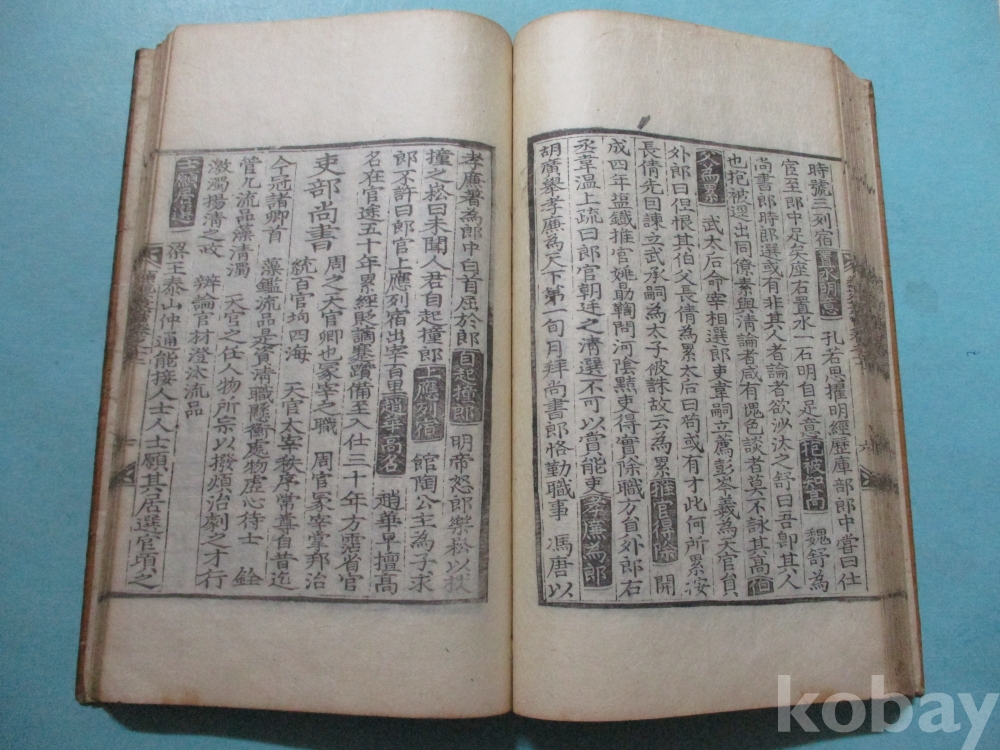 時號三刻宿置水明意 孔若思擢明經歷庫部郎中嘗曰仕
宦至郎中足矣座右置水一石明自足意抱被知高 魏舒為
尚書郎時郎選或有非其人者論者欲沙汰之舒曰吾即其人
也抱被逕出同僚素與清論者咸有愧色談者莫不詠其高伯
父為累 武太后命宰相選郎吏韋嗣立薦彭岑羲為天官員
外郎曰但恨其伯父長倩為累太后曰苟或有才此何所累按
長倩先曰諫立武承嗣為太子被誅故云為累推官得除 開
成四年塩鐵推官姚勗鞫問河陰黠吏得實除職方員外郎右
丞韋溫上疏曰郎官朝廷之清選不可以賞能吏孝廉為郎
胡廣舉孝廉為天下第一旬月拜尚書郎恪勤職事 馮唐以
孝廉著為郎中白首屈於郎自起撞郎 明帝怒郎藥崧以杖
撞之崧曰未聞人君自起撞郎上應列宿 館陶公主為子求
郎不許曰郎官上應列宿出宰百里趙華高名 趙華早擅高
名在官途五十年累經貶謫蹇躓備至入仕三十年方霑省官
吏部尚書 周之天官卿也冢宰之職 周官冢宰掌邦治
統百官均四海 天官太宰秩序常尊自昔迄
今冠諸卿首 藻鑑流品是資清職懸衡處物虛心待士 銓
管九流品藻清濁 天官之任人物所宗以撥煩治劇之才行
激濁揚清之 辨論官材澄汰流品
梁王泰山仲通能接人士人士願其居選官頃之